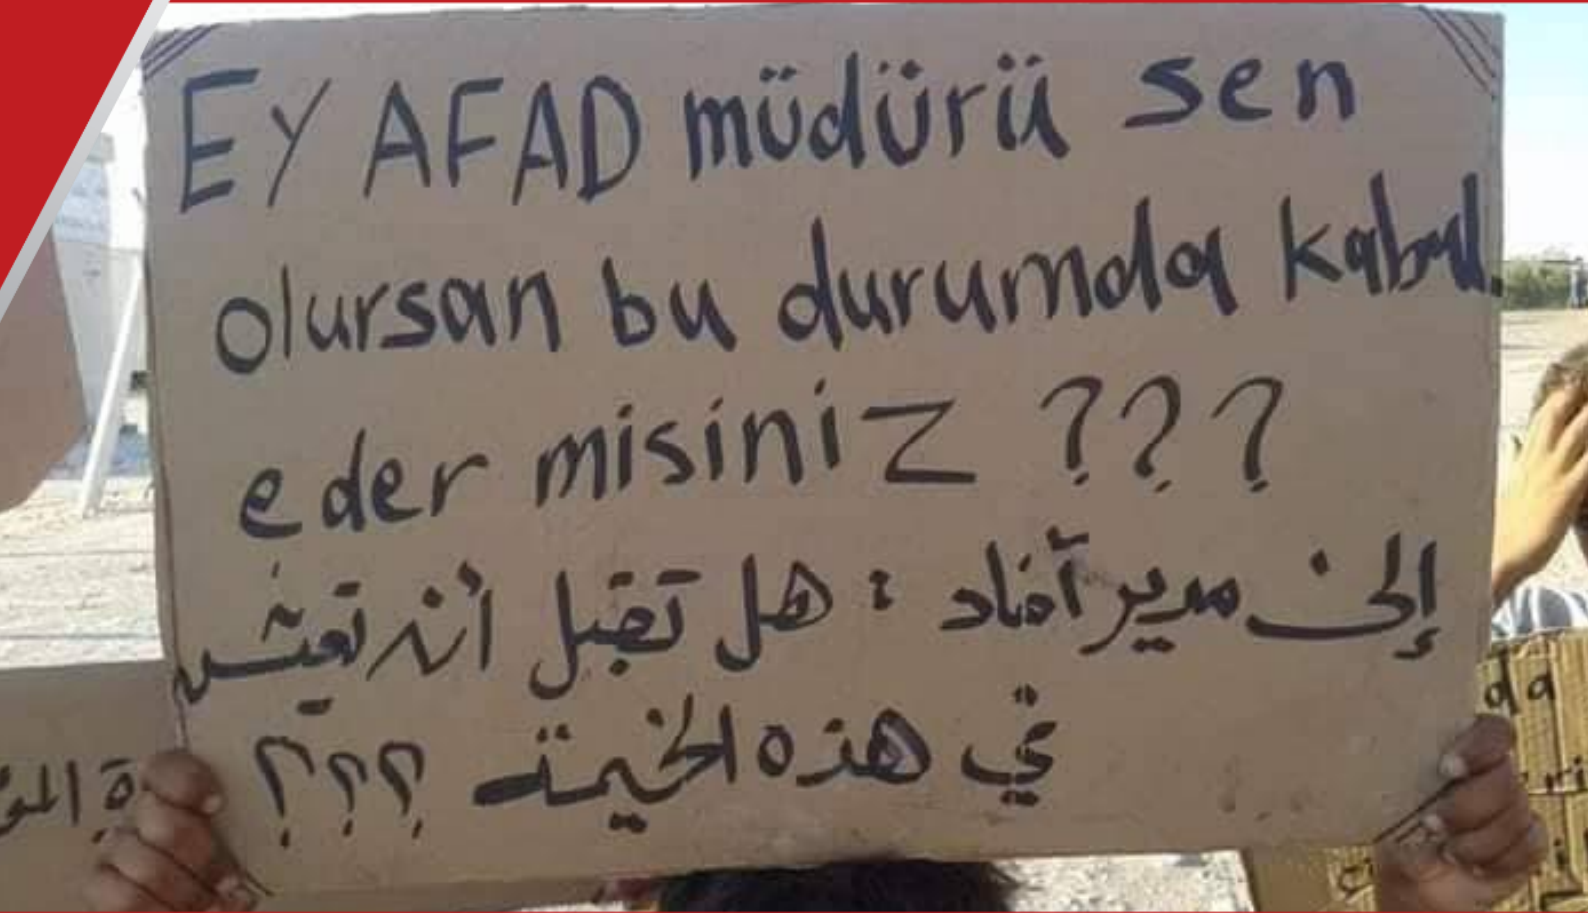 EY AFAD müdürü sen
olursan bu durumda kabul
eder misiniz ???
إلى مدير آفاد : هل تقبل أن تعيش
في هذه الخيمة ؟؟؟
da